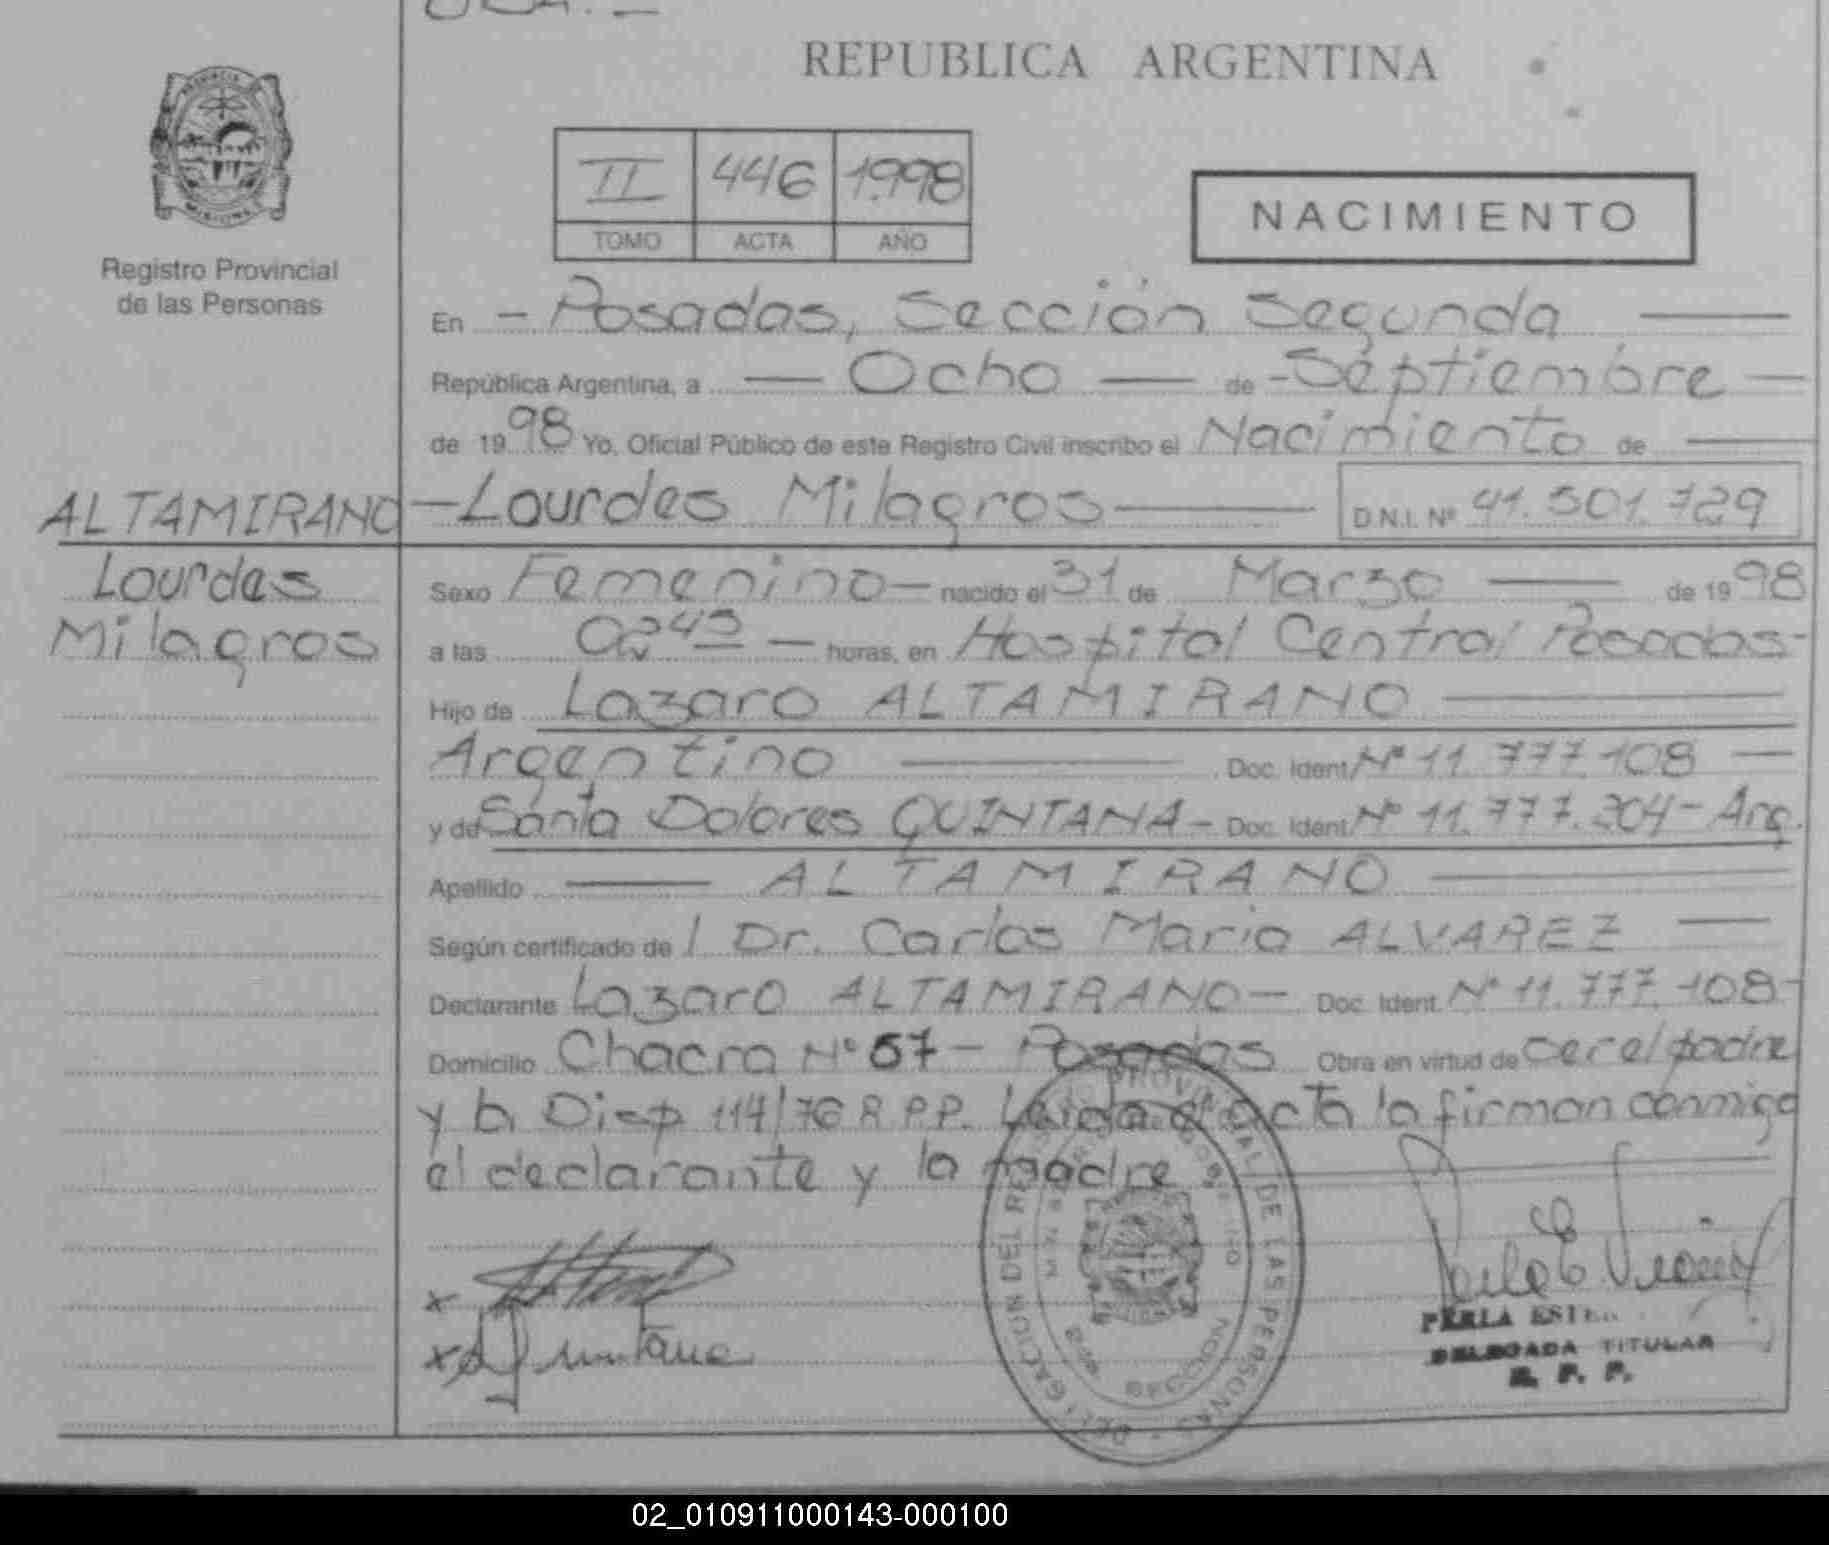 REPUBLICA ARGENTINA
II 446 1.998
TOMO ACTA AÑO
NACIMIENTO
Registro Provincial
de las Personas
En - Posadas, Sección Segunda
República Argentina, a Ocho de - Septiembre
de 1998 Yo, Oficial Público de este Registro Civil inscribo el Nacimiento de
ALTAMIRANO - Lourdes Milagros D.N.I. Nº 41.501.729
Lourdes
Milagros
Sexo Femenino - nacido el 31 de Marzo de 1998
a las horas, en Hospital Central Posadas-
Hijo de Lazaro ALTAMIRANO
Argentino Doc. Ident. Nº 11.777.108
y de Santa Dolores QUINTANA - Doc. Ident. Nº 11.777.204 - Arg.
Apellido ALTAMIRANO
Según certificado de Dr. Carlos Mario ALVAREZ
Declarante Lazaro ALTAMIRANO - Doc. Ident. Nº 11.777.108-
Domicilio Chacra Nº 57 - Posadas Obra en virtud de cer el padre
y b. Disp 114/76 R.P.P. Leida el acta la firman conmigo
el declarante y la madre
DELEGACION DEL REGISTRO PROVINCIAL DE LAS PERSONAS
SECCION
x
x Quintana
PERLA
DELEGADA TITULAR
R. P. P.
02_010911000143-000100